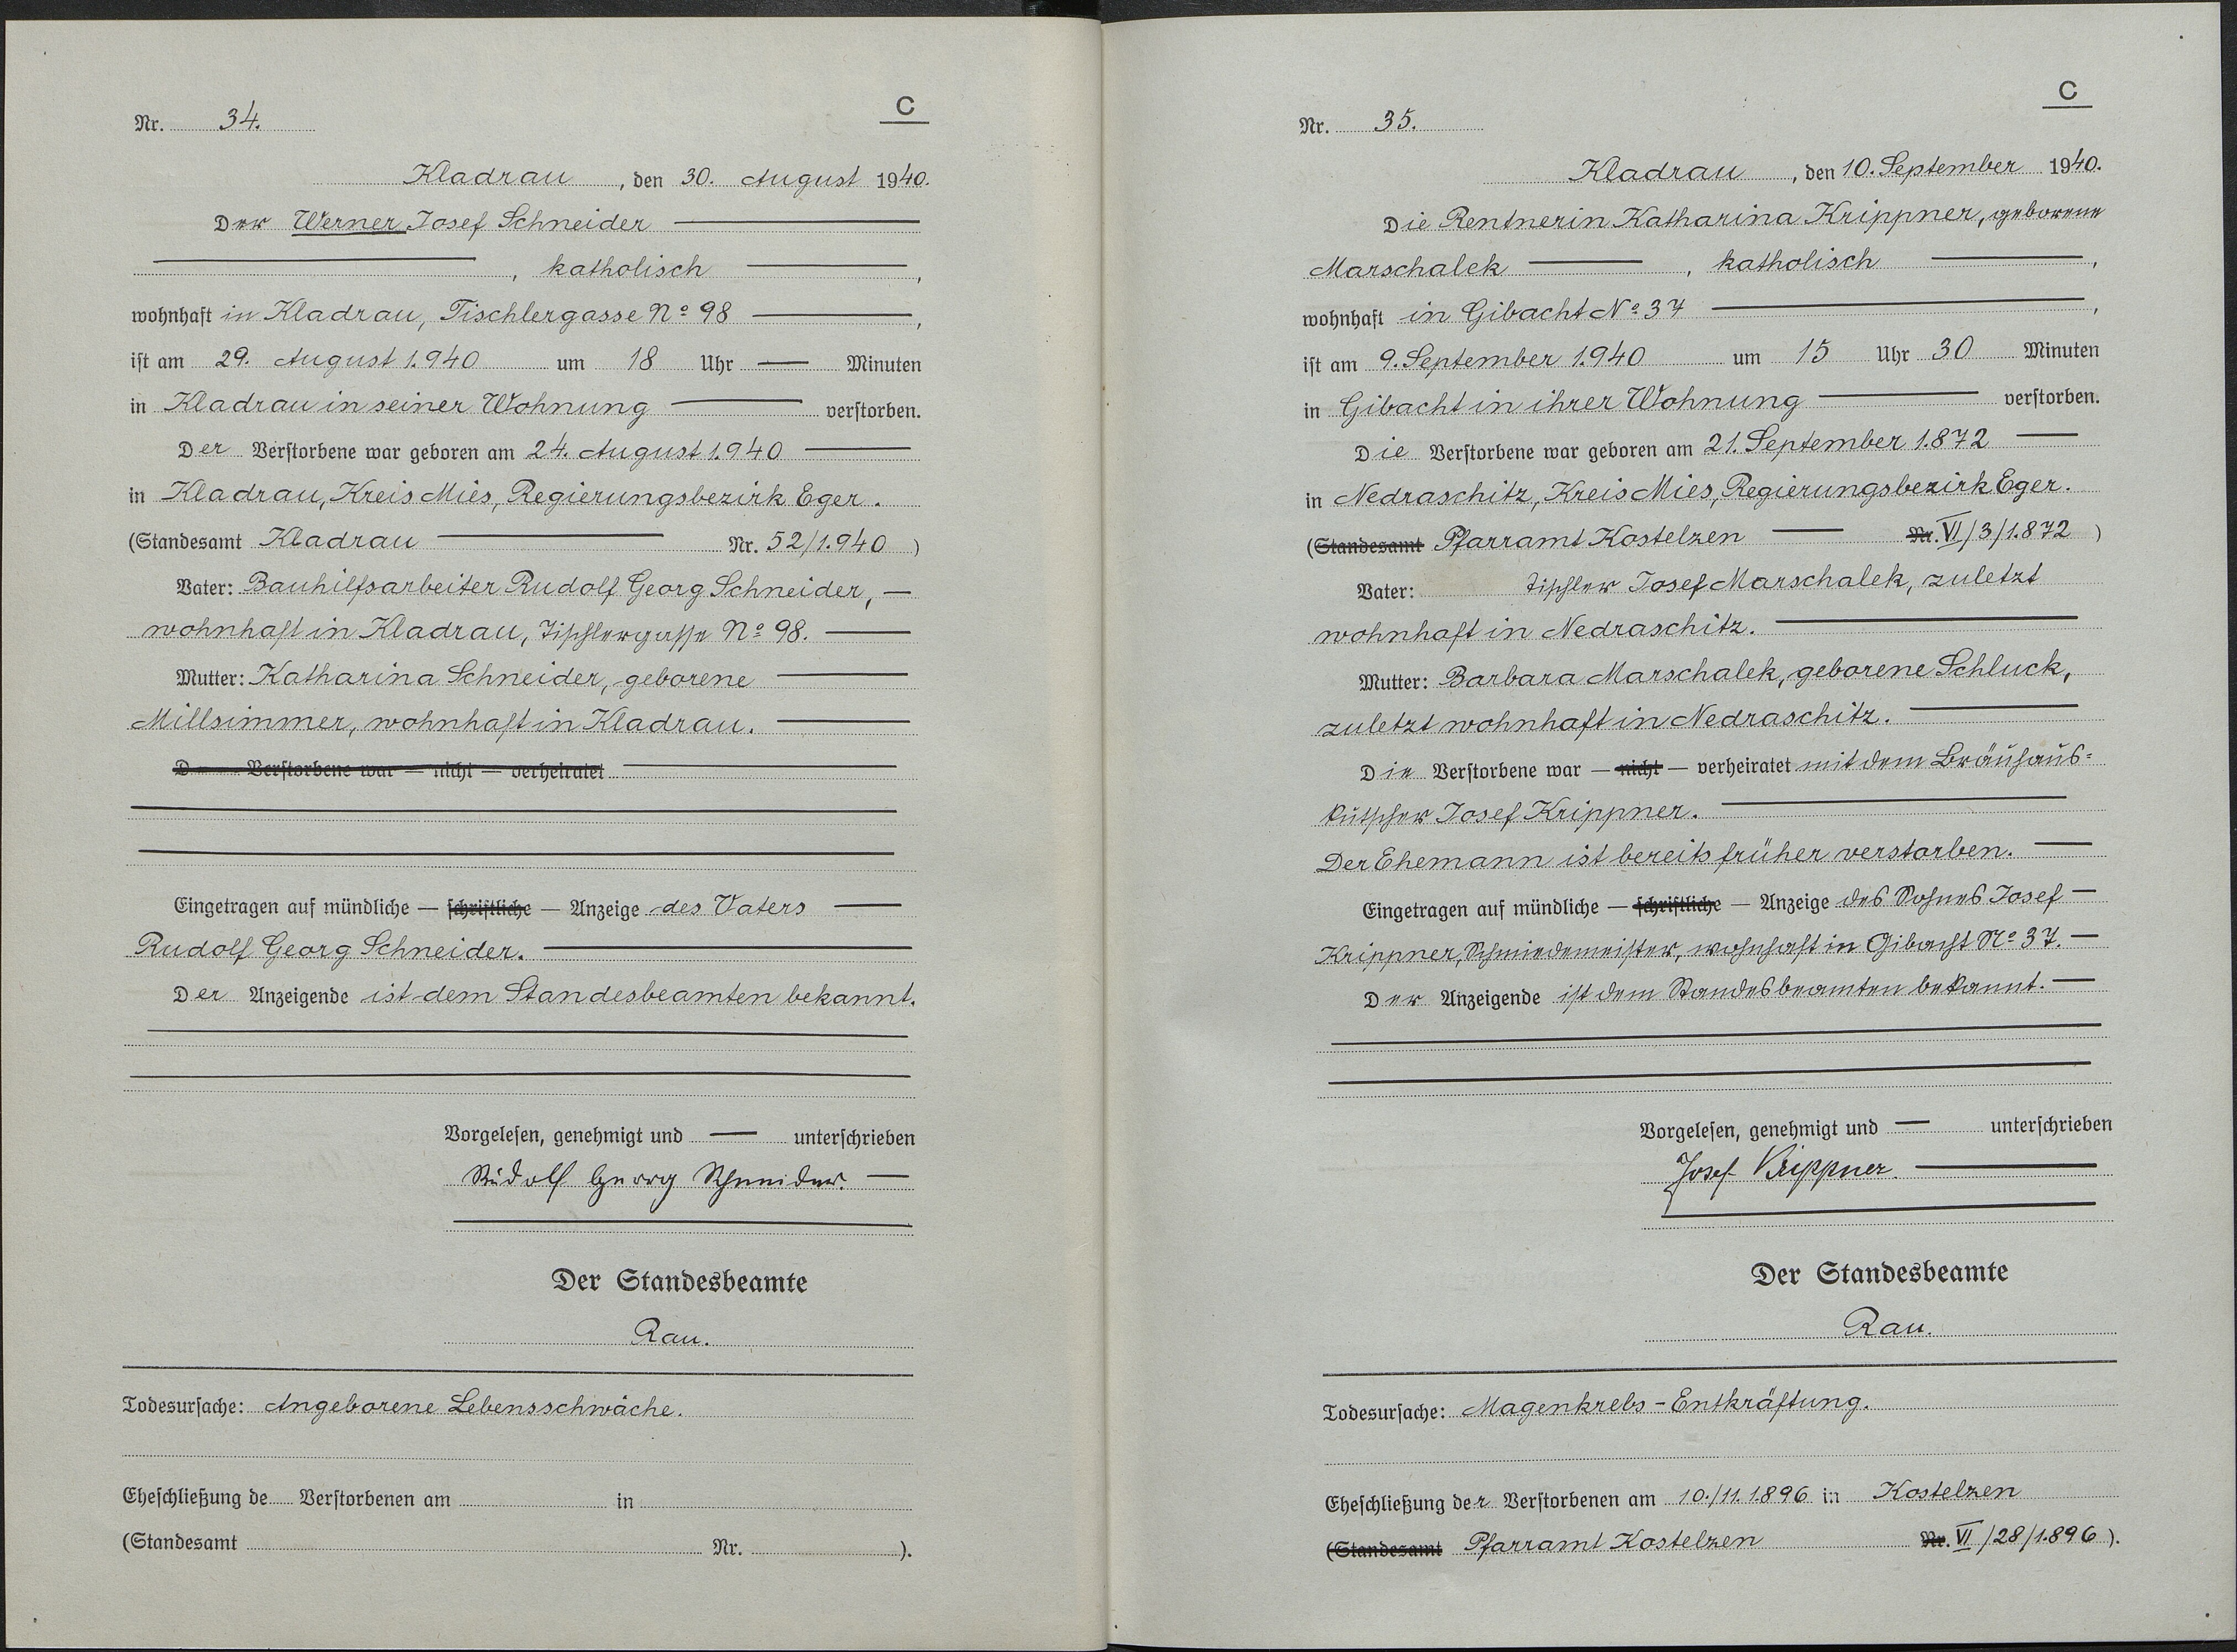 C
Nr. 34.
Kladrau, den 30. August 1940.
Der Werner Josef Schneider
, katholisch ,
wohnhaft in Kladrau, Tischlergasse No 98 ,
ist am 29. August 1.940 um 18 Uhr — Minuten
in Kladrau in seiner Wohnung verstorben.
Der Verstorbene war geboren am 24. August 1.940
in Kladrau, Kreis Mies, Regierungsbezirk Eger.
(Standesamt Kladrau Nr. 52/1.940 )
Vater: Bauhilfsarbeiter Rudolf Georg Schneider, —
wohnhaft in Kladrau, Tischlergasse No 98.
Mutter: Katharina Schneider, geborene
Millsimmer, wohnhaft in Kladrau.
D Verstorbene war — nicht — verheiratet
Eingetragen auf mündliche — schriftliche — Anzeige des Vaters
Rudolf Georg Schneider.
Der Anzeigende ist dem Standesbeamten bekannt.
Vorgelesen, genehmigt und — unterschrieben
Rudolf Georg Schneider.
Der Standesbeamte
Rau.
Todesursache: Angeborene Lebensschwäche.
Eheschließung de Verstorbenen am in
(Standesamt Nr. ).
C
Nr. 35.
Kladrau, den 10. September 1940.
Die Rentnerin Katharina Krippner, geborene
Marschalek , katholisch ,
wohnhaft in Gibacht No 37 ,
ist am 9. September 1.940 um 15 Uhr 30 Minuten
in Gibacht in ihrer Wohnung verstorben.
Die Verstorbene war geboren am 21. September 1.872
in Nedraschitz, Kreis Mies, Regierungsbezirk Eger.
(Standesamt Pfarramt Kostelzen Nr. VI/3/1.872 )
Vater: Tischler Josef Marschalek, zuletzt
wohnhaft in Nedraschitz.
Mutter: Barbara Marschalek, geborene Schluck,
zuletzt wohnhaft in Nedraschitz.
Die Verstorbene war — nicht — verheiratet mit dem Bräuhaus=
kutscher Josef Krippner.
Der Ehemann ist bereits früher verstorben.
Eingetragen auf mündliche — schriftliche — Anzeige des Sohnes Josef —
Krippner, Schmiedemeister, wohnhaft in Gibacht No 37. —
Der Anzeigende ist dem Standesbeamten bekannt.
Vorgelesen, genehmigt und — unterschrieben
Josef Krippner
Der Standesbeamte
Rau.
Todesursache: Magenkrebs - Entkräftung.
Eheschließung der Verstorbenen am 10./11.1.896 in Kostelzen
(Standesamt Pfarramt Kostelzen Nr. VI/28/1.896 ).